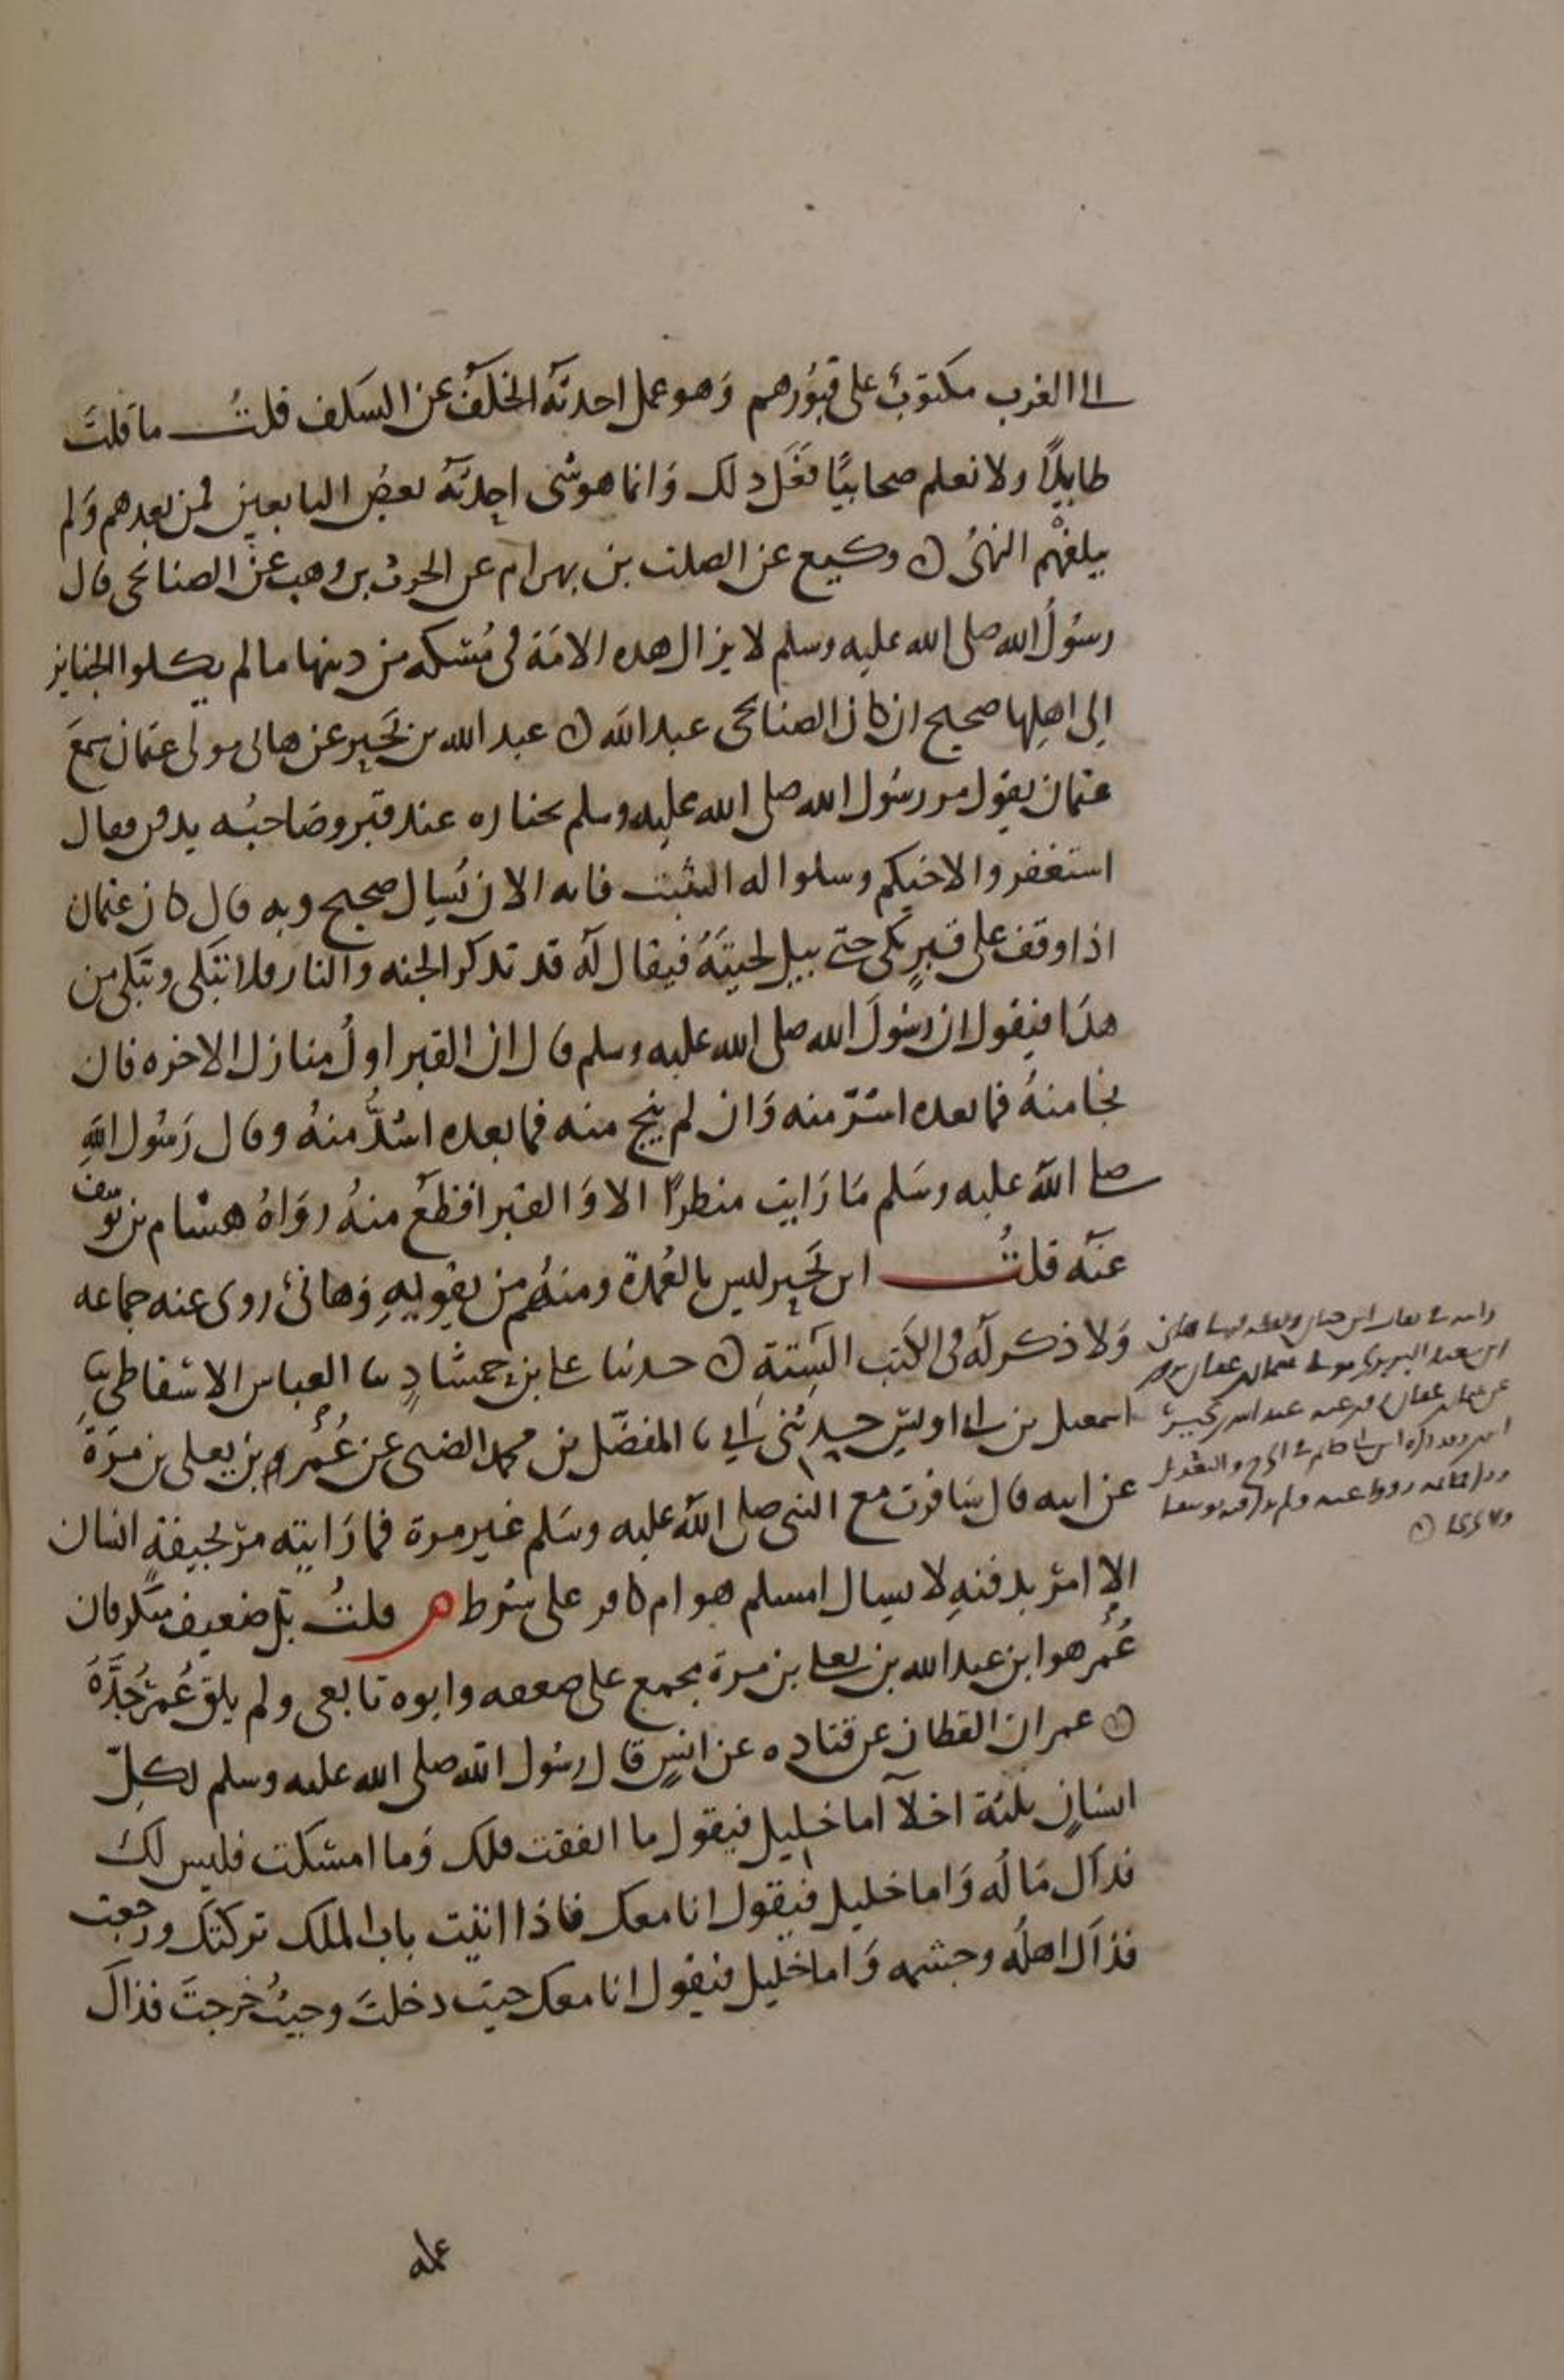 الى الغرب مكتوبٌ على قبورهم وهو عمل اخذه الخلف عن السلف قلتُ ما قلتَ
طايلاً ولا نعلم صحابيًا فعَل ذلك وانما هو شى احدثه بعض التابعين فمن بعدهم ولم
يبلغهم النهىُ ن وكيع عن الصلت بن بهرام عن الحرث بن وهب عن الصنابحى قال
رسُولُ الله صلى الله عليه وسلم لا يزال هذه الامة فى مُسْكه من دينها ما لم يكلوا الجنايز
الى اهلها صحيح ان كان الصنابحى عبد الله ن عبد الله بن بَحِير عن هانى مولى عثمان سمعَ
عثمان يقول مر رسُول الله صلى الله عليه وسلم بجنازه عند قبر وصاحبُه يدفن فقال
استغفروا لاخيكم وسلوا له التثبت فانه الان يُسال صحيح وبه قال كان عثمان
اذا وقف على قبرٍ بكى حتى يبل لحيتَهُ فيقال له قد تذكر الجنه والنار فلا تبكى وتبكى من
هذا فيقول ان رسُولَ الله صلى الله عليه وسلم قال ان القبر اولُ منازل الاخره فان
نجا منهُ فما بعده ايسَرُ منه وان لم ينج منه فما بعده اشدُّ منهُ وقال رَسُول اللهِ
صلى الله عليه وسَلم مَا رَايت منظرًا الا وَالقبر افظعُ منهُ روَاهُ هشام بن يُوسف
عنه قلتُ ابن بَحِير ليس بالعُمدة ومنهُم من يقويهِ وَهانئ روى عنه جماعه
وَلا ذكر له فى الكتب الستةِ ن حدثنا على بن حمشاد ثنا العباس الاسفاطى ثنا
اسمعيل بن ابى اويس حدثنى ابى ثنا المفضّل بن محمد الضبى عن عُمَر بن يعلى بن مرَةَ
عن ابيه قال سَافرت مع النبى صلى الله عليه وسَلم غير مرة فما رَايته مرّ بجيفةِ انسان
الا امر بدفنهِ لا يسال امسلم هو ام كافر على شرط م قلتُ بَل ضعيف منكر فان
عُمَر هو ابن عبد الله بن يعلى بن مرة مجمع على ضعفه وابوه تابعى ولم يلق عُمَر جَدَّهُ
ن عمران القطان عن قتاده عن انسٍ قال رسُول الله صلى الله عليه وسلم لكلّ
انسانٍ ثلثة اخلاء اما خليل فيقول ما انفقت فلك وَما امسكت فليس لكَ
فذاك مَالُه وَاما خليل فيقول انا معك فاذا اتيت باب الملك تركتك ورجعت
فذاك اهلُه وحشمه وَاما خليل فيقول انا معك حيث دخلتَ وحيثُ خرجتَ فذاكَ
ابن حبان هانى
ابن سعيد البربرى مولى عثمان بن عفان
عن عثمان بن عفان عنه عبد الله بن بحير
ابن ابى حاتم فى الجرح والتعديل
عمله